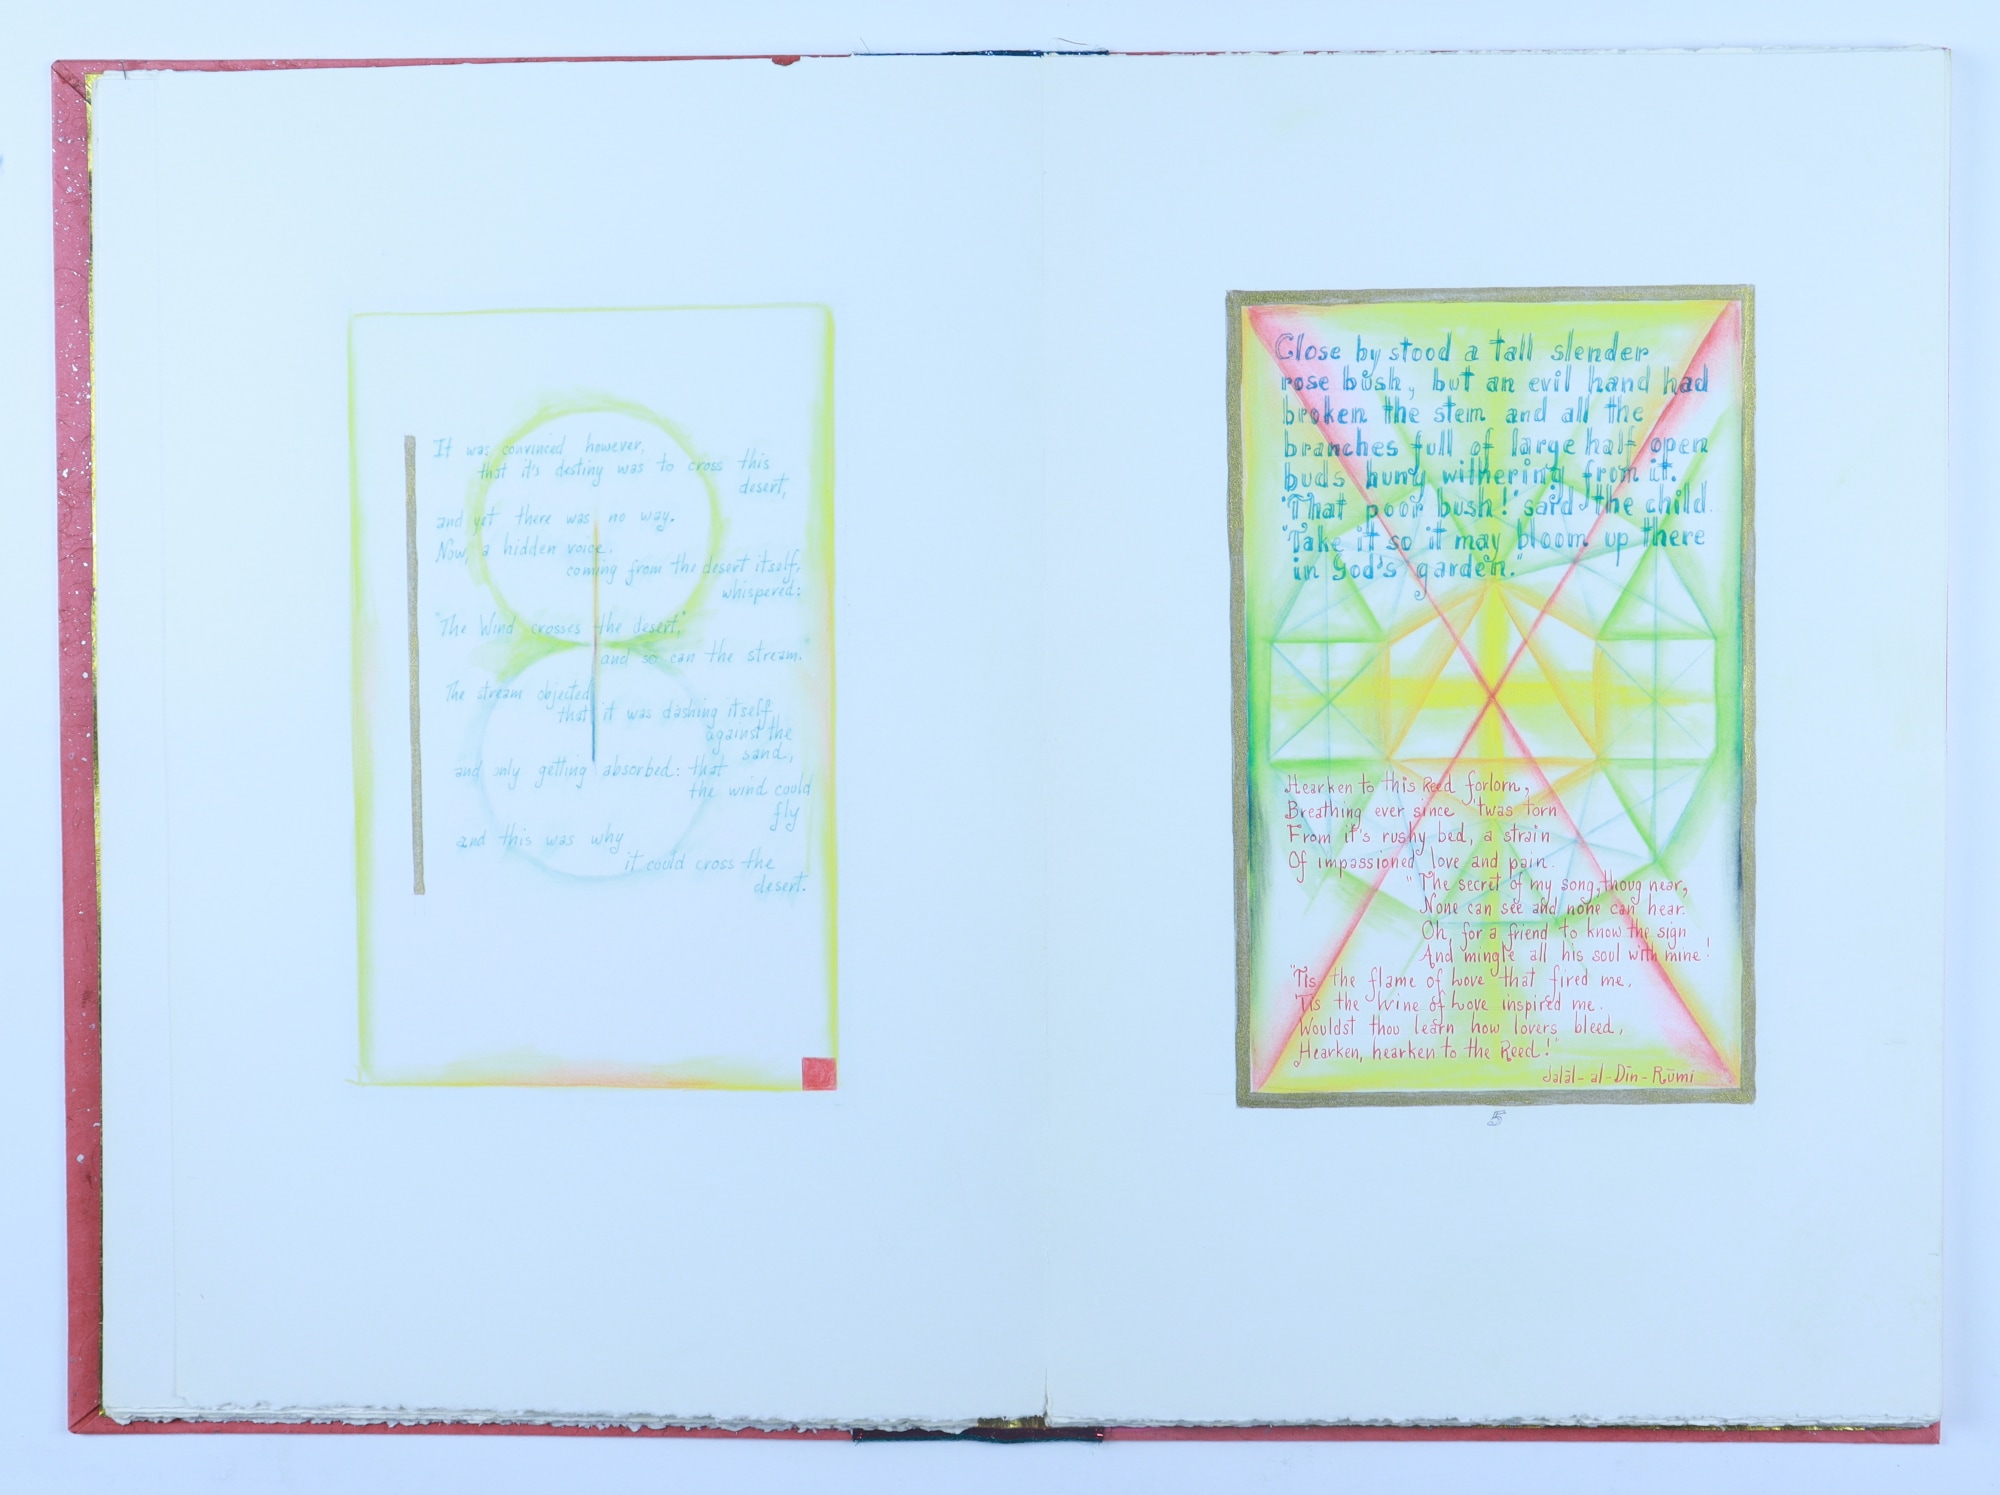 It was convinced however,
that it's destiny was to cross this
desert,
and yet there was no way.
Now, a hidden voice,
coming from the desert itself,
whispered:
"The Wind crosses the desert,"
and so can the stream."
The stream objected
that it was dashing itself
against the
sand,
and only getting absorbed: that
the wind could
fly
and this was why
it could cross the
desert.
Close by stood a tall slender
rose bush, but an evil hand had
broken the stem and all the
branches full of large half open
buds hung withering from it.
"That poor bush!" said the child.
"Take it so it may bloom up there
in God's garden."
Hearken to this Reed forlorn,
Breathing ever since 'twas torn
From it's rushy bed, a strain
Of impassioned love and pain.
"The secret of my song, thoug near,
None can see and none can hear.
Oh, for a friend to know the sign
And mingle all his soul with mine!
"Tis the flame of Love that fired me,
'Tis the Wine of Love inspired me.
Wouldst thou learn how lovers bleed,
Hearken, hearken to the Reed!"
Jalāl-al-Dīn-Rūmi
5